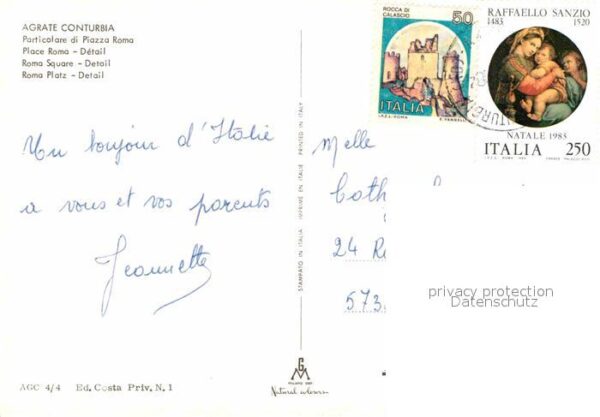 AGRATE CONTURBIA
Particolare di Piazza Roma
Place Roma - Détail
Roma Square - Detail
Roma Platz - Detail
Un bonjour d'Italie
a vous et vos parents
Jeannette
AGC 4/4 Ed. Costa Priv. N. 1
STAMPATO IN ITALIA IMPRIMÉ EN ITALIE PRINTED IN ITALY
Natural colours
ROCCA DI
CALASCIO
50
ITALIA
RAFFAELLO SANZIO
1483 1520
NATALE 1983
ITALIA 250
Melle
Cath
24 R
573
privacy protection
Datenschutz